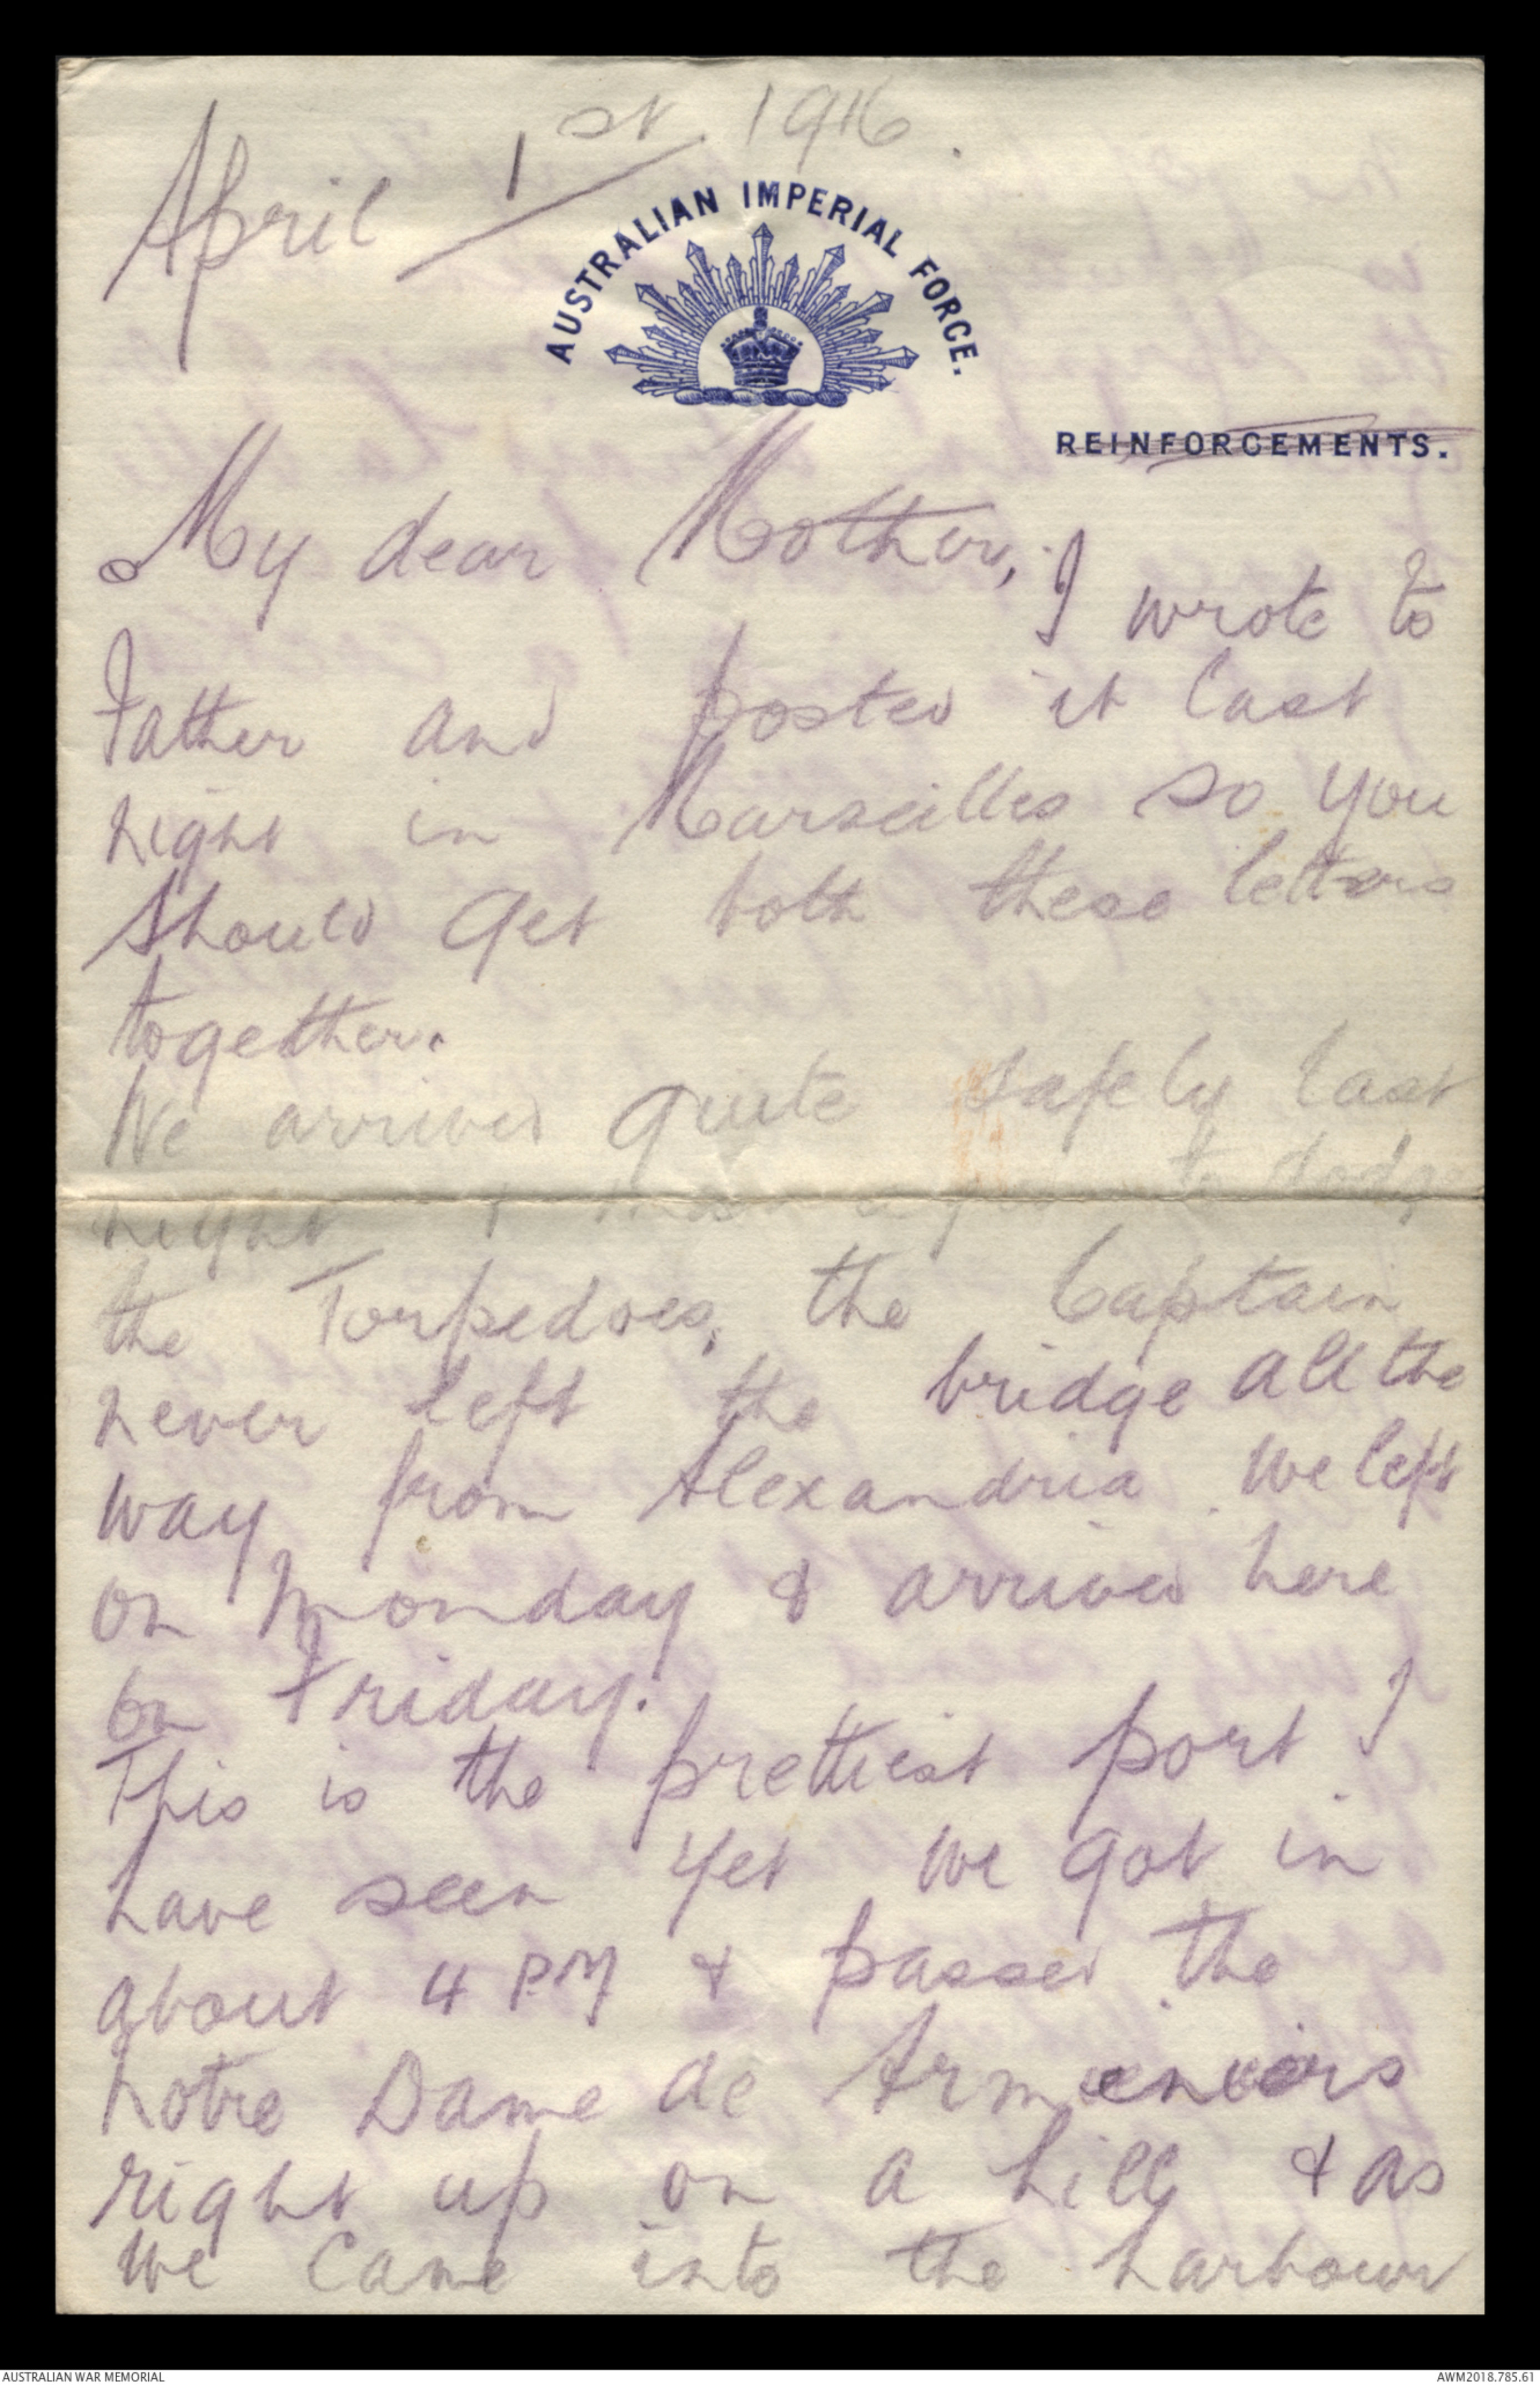 April 1st 1916.
AUSTRALIAN IMPERIAL FORCE.
REINFORCEMENTS.
My dear Mother,
I wrote to
Father and posted it last
night in Marseilles so you
should get both these letters
together.
We arrived quite safely last
night to dodge
the Torpedoes, the Captain
never left the bridge all the
way from Alexandria. We left
on Monday & arrived here
on Friday.
This is the prettiest port I
have seen yet we got in
about 4 PM & passed the
Notre Dame de
right up on a hill & as
we came into the harbour
AUSTRALIAN WAR MEMORIAL
AWM2018.785.61